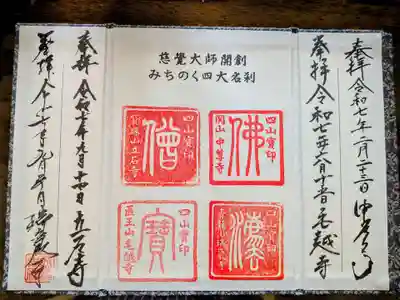 奉拝 令和七年二月二十三日 中尊寺
奉拝 令和七年六月十五日 毛越寺
慈覺大師開創
みちのく四大名刹
四山寶印
佛
関山 中尊寺
四山寶印
僧
寶珠山立石寺
四山寶印
四山寶印
寶
医王山毛越寺
奉拝 令和七年九月十四日 立石寺
奉拝 令和
瑞巌寺